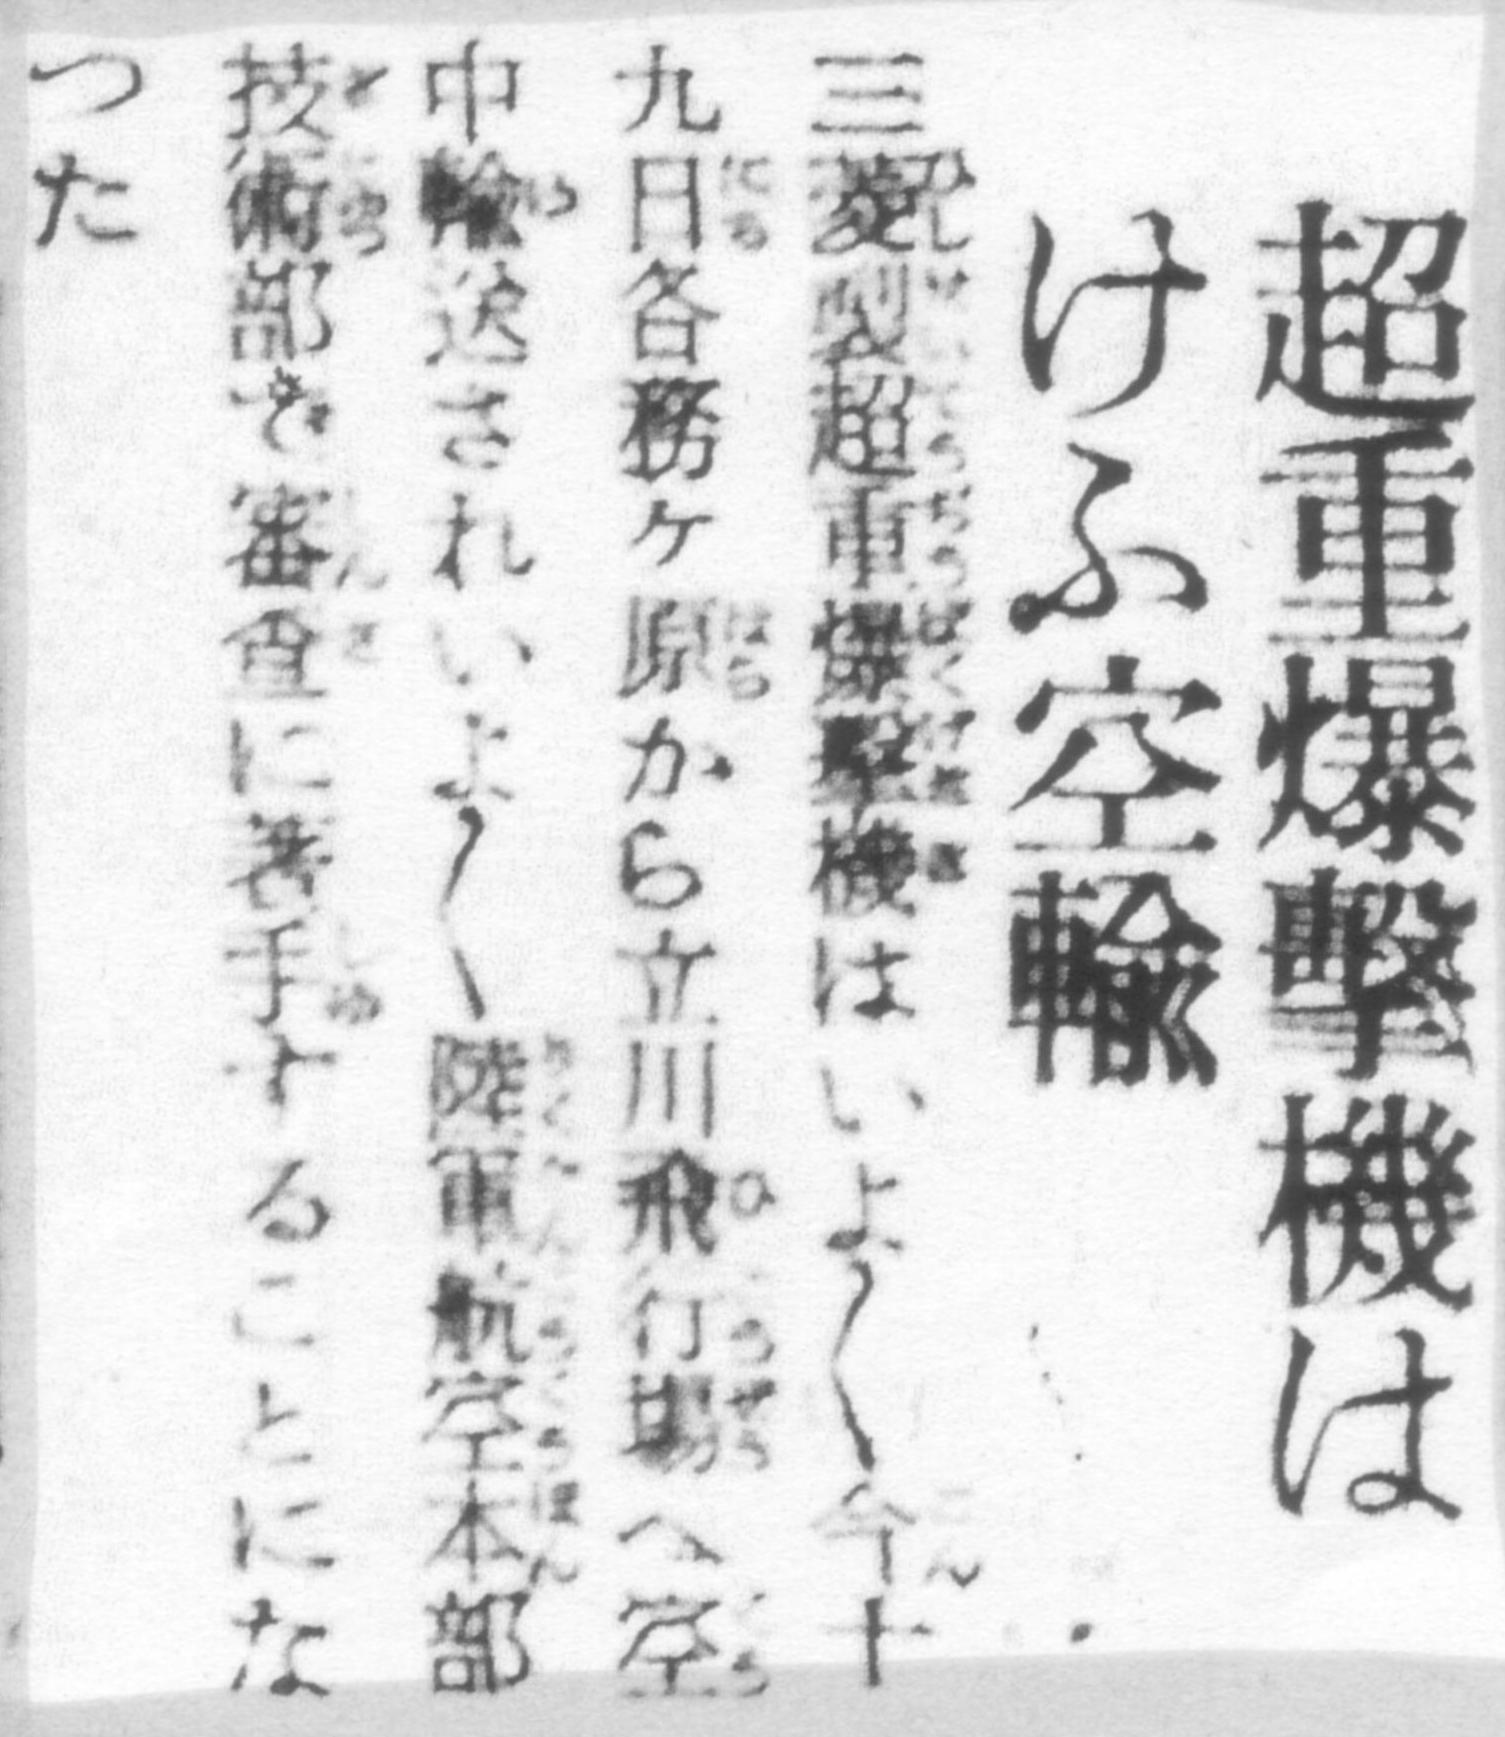 超重爆撃機は
けふ空輸
三菱製超重爆撃機はいよ〳〵今十
九日各務ヶ原から立川飛行場へ空
中輸送されいよ〳〵陸軍航空本部
技術部で審査に著手することにな
つた